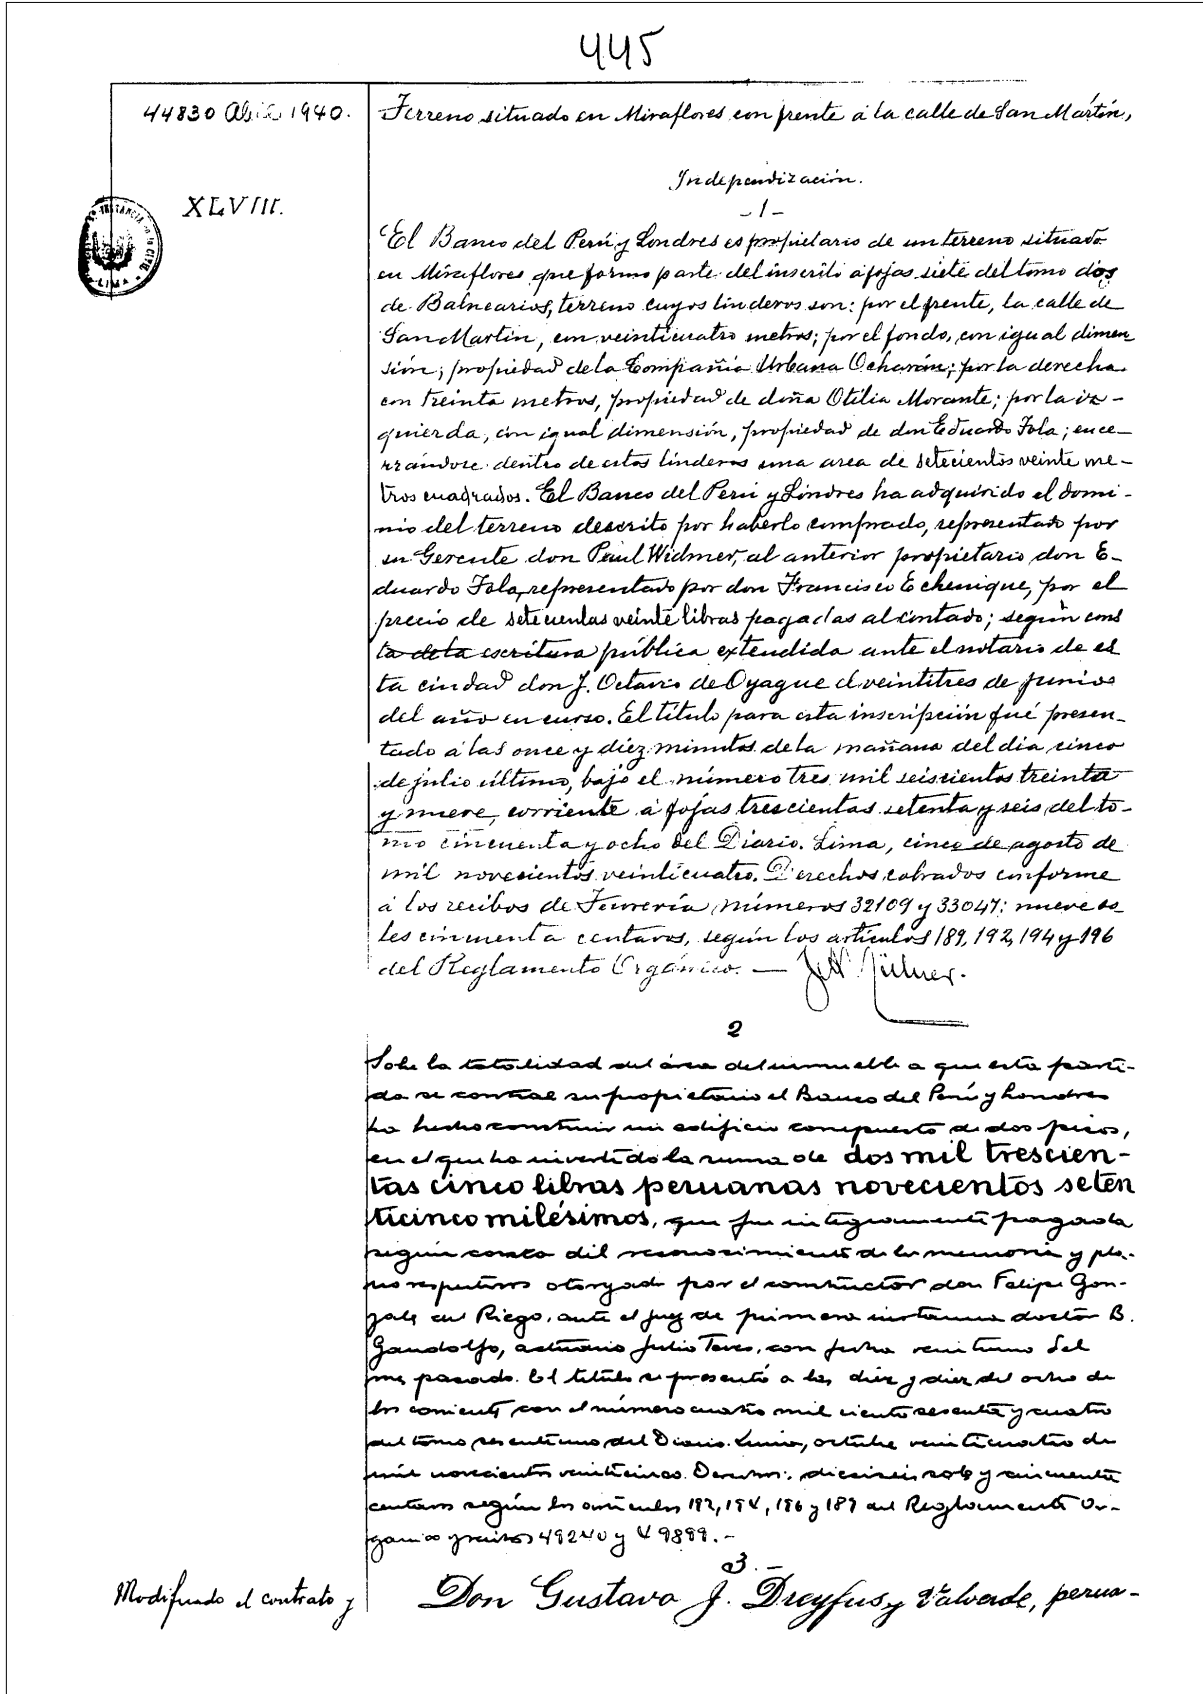 445
44830 Abril 1940.
Terreno situado en Miraflores con frente á la calle de San Martín,
Independización.
XLVIII.
-1-
El Banco del Perú y Londres es propietario de un terreno situado
en Miraflores que formo parte del inscrito á fojas siete del tomo dos
de Balnearios, terreno cuyos linderos son: por el frente, la calle de
San Martín, con veinticuatro metros; por el fondo, con igual dimen
sión; propiedad de la Compañía Urbana Ocharán; por la derecha
con treinta metros, propiedad de doña Otilia Morante; por la iz-
quierda, con igual dimensión, propiedad de don Eduardo Fola; ence-
rrándose dentro de estos linderos una area de setecientos veinte me-
tros cuadrados. El Banco del Perú y Londres ha adquirido el domi-
nio del terreno descrito por haberlo comprado, representado por
su Gerente don Paul Widmer, al anterior propietario don E-
duardo Fola, representado por don Francisco Echenique, por el
precio de setecientas veinte libras pagadas al contado; según cons
ta de la escritura pública extendida ante el notario de es
ta ciudad don J. Octavio de Oyague el veintitres de junio
del año en curso. El título para esta inscripción fué presen-
tado á las once y diez minutos de la mañana del dia cinco
de julio último, bajo el número tres mil seiscientos treinta
y nueve, corriente á fojas trescientas setenta y seis del to-
mo cincuenta y ocho del Diario. Lima, cinco de agosto de
mil novecientos veinticuatro. Derechos cobrados conforme
á los recibos de Tesorería números 32109 y 33047: nueve so
les cincuenta centavos, según los artículos 189, 192, 194 y 196
del Reglamento Orgánico. —
2
Sobre la totalidad del área del inmueble a que esta parti-
da se contrae su propietario el Banco del Perú y Londres
ha hecho construir un edificio compuesto de dos pisos,
en el que ha invertido la suma de dos mil trescien-
tas cinco libras peruanas novecientos seten
ticinco milésimos, que fue integramente pagada
según consta del reconocimiento de la memoria y pla-
nos respectivos otorgado por el constructor don Felipe Gon-
zales del Riego, ante el juez de primera instancia doctor B.
Gandolfo, actuario Julio, con fecha veintiuno del
mes pasado. El título se presentó a las diez y diez del ocho de
los corrientes con el número cuatro mil ciento sesenta y cuatro
del tomo sesentiuno del Diario. Lima, octubre veinticuatro de
mil novecientos veinticinco. Derechos: dieciseis soles y cincuenta
centavos según los artículos 192, 194, 196 y 189 del Reglamento Or-
ganico y recibos 49240 y 49899.-
3.-
Modificado el contrato y
Don Gustavo J. Dreyfus y Valverde, perua-